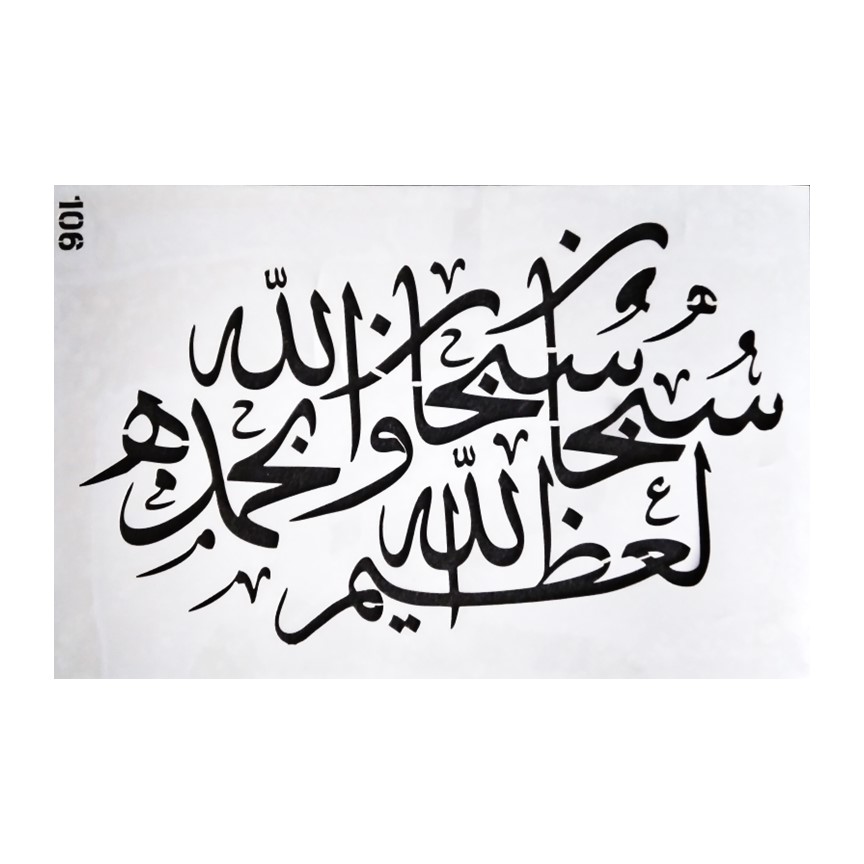 106
سبحان الله وبحمده
سبحان الله العظيم